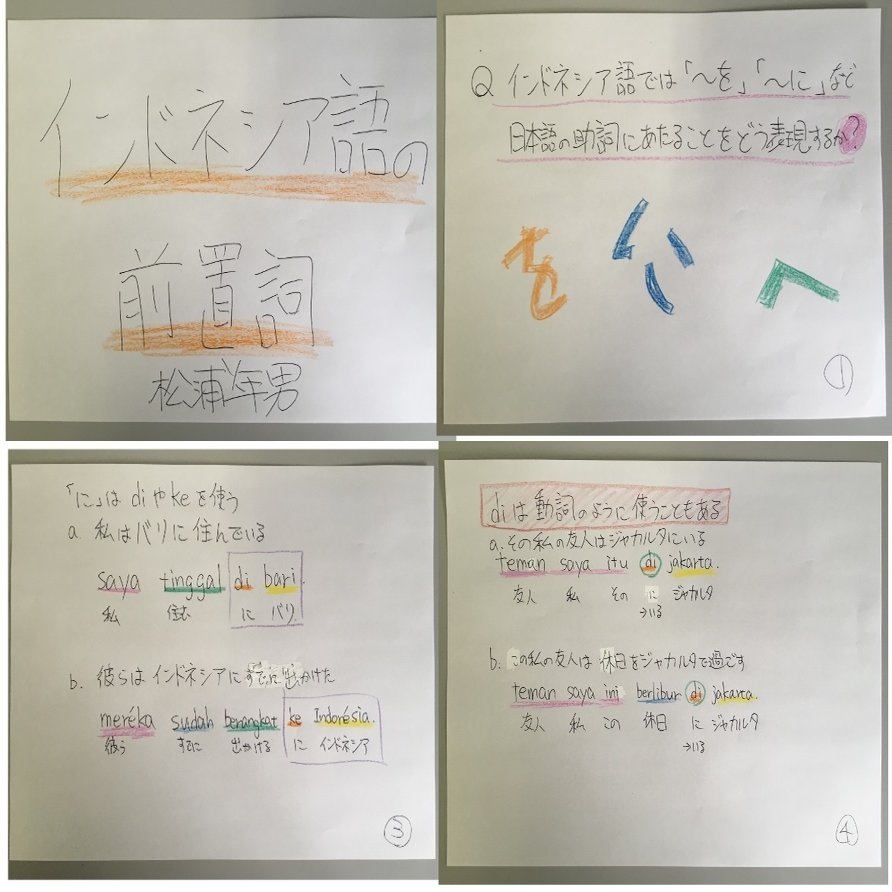 インドネシア語の
前置詞
松浦年男
Q インドネシア語では「〜を」「〜に」など
日本語の助詞にあたることをどう表現するか?
を に へ
①
「に」は di や ke を使う
a. 私はバリに住んでいる
saya tinggal di bari.
私 住む に バリ
b. 彼らはインドネシアにすでに出かけた
meréka sudah berangkat ke Indonésia.
彼ら すでに 出かける に インドネシア
③
diは動詞のように使うこともある
a. その私の友人はジャカルタにいる
teman saya itu di jakarta.
友人 私 その に ジャカルタ
→いる
b. この私の友人は休日をジャカルタで過ごす
teman saya ini berlibur di jakarta.
友人 私 この 休日 に ジャカルタ
→いる
④